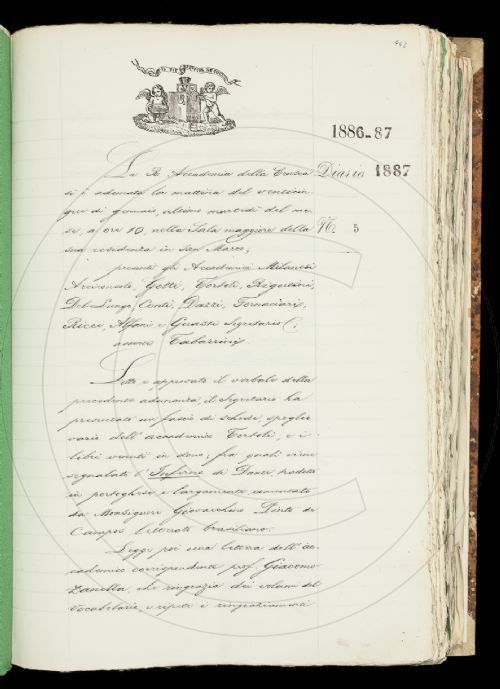 442
1886-87
Diario 1887
N. 5
La R. Accademia della Crusca
si è adunata la mattina del venticin-
que di gennaio, ultimo martedì del me-
se, a ore 10, nella Sala maggiore della
sua residenza in San Marco;
presenti gli Accademici Milanesi
Arciconsolo, Gotti, Tortoli, Rigutini,
Del-Lungo, Conti, Dazzi, Tornaciari,
Ricci, Alfani e Guasti Segretario;
Tabarrini.
Letto e approvato il verbale della
precedente adunanza, il Segretario ha
presentato un fascio di schede, spoglio
vario dell'accademico Tortoli, e i
libri venuti in dono; fra quali viene
segnalato l'Inferno di Dante tradotto
in portoghese e largamente comentato
da Monsignore Giovacchino Pinto de
Campos letterato brasiliano.
Legge poi una lettera dell'ac-
cademico corrispondente prof. Giacomo
Zanella, che ringrazia dei volumi del
Vocabolario, e ripete i ringraziamenti